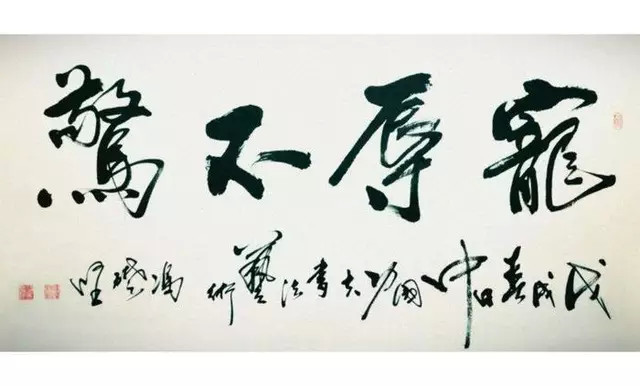 寵辱不驚
戊戌春日中國功夫書法藝術馮